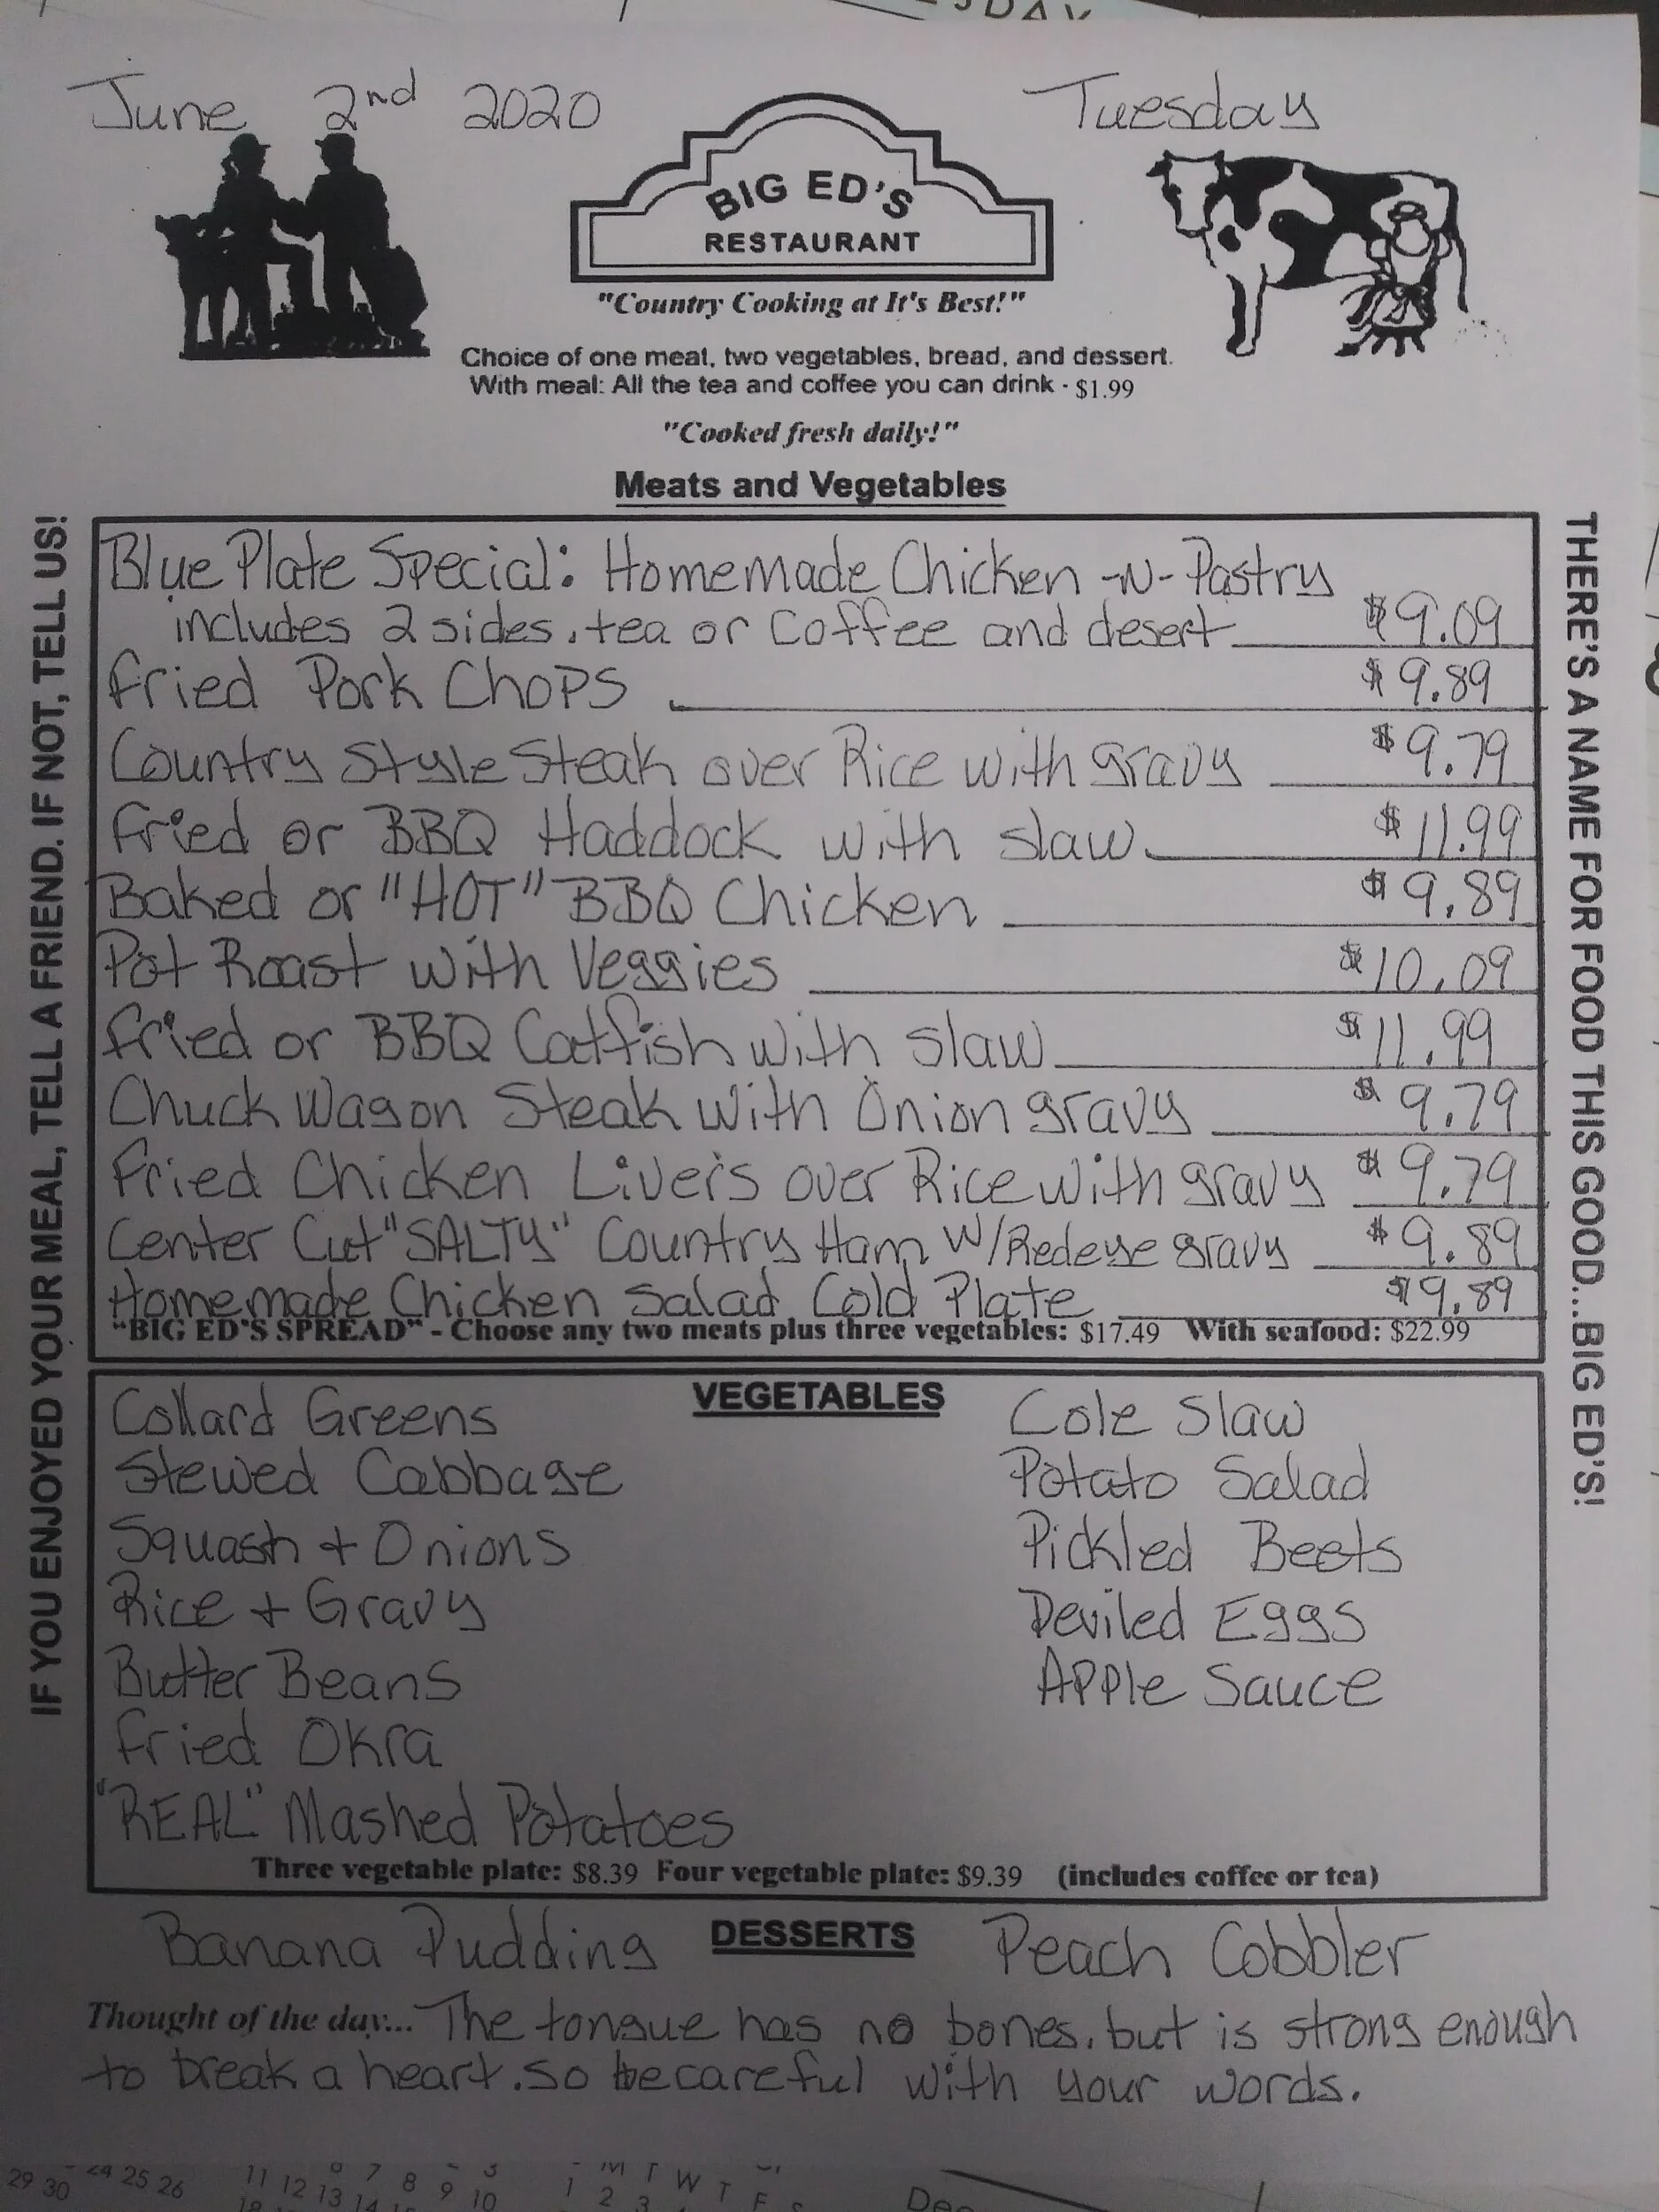 June 2nd 2020
Tuesday
BIG ED'S
RESTAURANT
"Country Cooking at It's Best!"
Choice of one meat, two vegetables, bread, and dessert.
With meal: All the tea and coffee you can drink - $1.99
"Cooked fresh daily!"
Meats and Vegetables
IF YOU ENJOYED YOUR MEAL, TELL A FRIEND. IF NOT, TELL US!
Blue Plate Special: Homemade Chicken -N- Pastry
includes 2 sides, tea or Coffee and desert $9.09
Fried Pork Chops $9.89
Country Style Steak over Rice with gravy $9.79
Fried or BBQ Haddock with slaw $11.99
Baked or "HOT" BBQ Chicken $9.89
Pot Roast with Veggies $10.09
Fried or BBQ Catfish with slaw $11.99
Chuck Wagon Steak with Onion gravy $9.79
Fried Chicken Livers over Rice with gravy $9.79
Center Cut "SALTY" Country Ham W/Redeye gravy $9.89
Homemade Chicken Salad Cold Plate $9.89
"BIG ED'S SPREAD" - Choose any two meats plus three vegetables: $17.49 With seafood: $22.99
THERE'S A NAME FOR FOOD THIS GOOD...BIG ED'S!
VEGETABLES
Collard Greens
Stewed Cabbage
Squash + Onions
Rice + Gravy
Butter Beans
Fried Okra
"REAL" Mashed Potatoes
Cole Slaw
Potato Salad
Pickled Beets
Deviled Eggs
Apple Sauce
Three vegetable plate: $8.39 Four vegetable plate: $9.39 (includes coffee or tea)
DESSERTS
Banana Pudding
Peach Cobbler
Thought of the day... The tongue has no bones, but is strong enough
to break a heart. so be careful with your words.